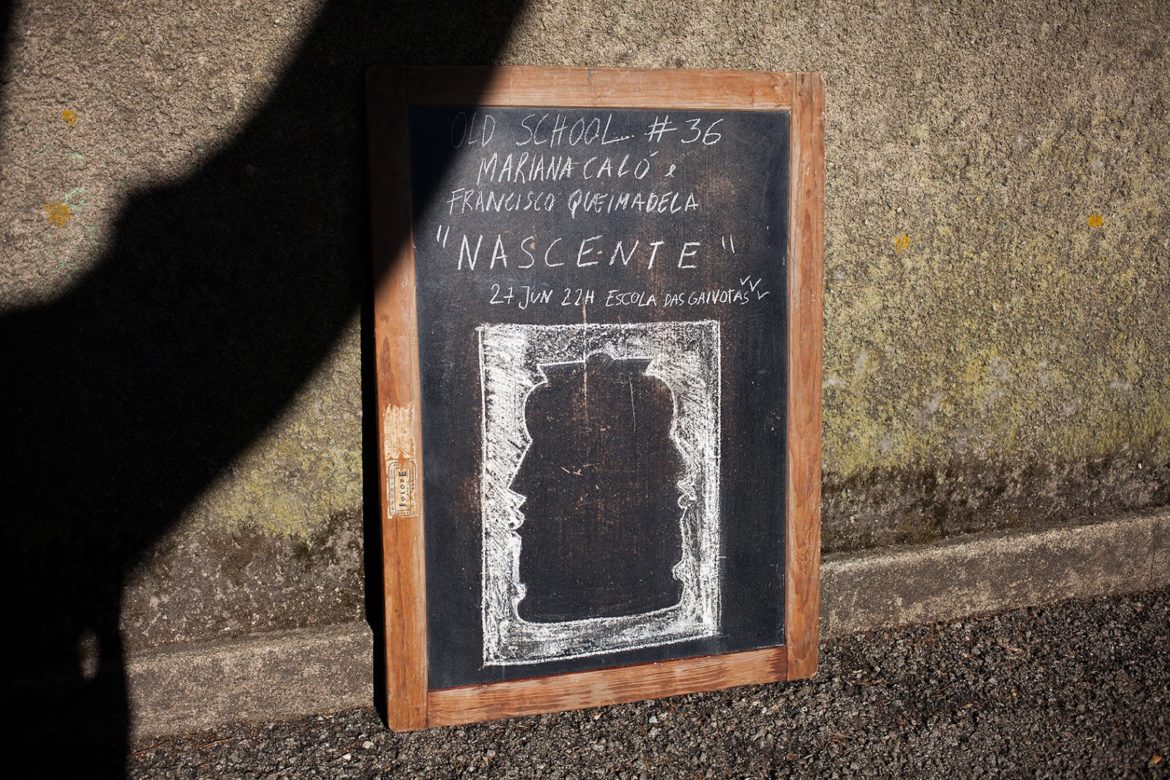 OLD SCHOOL #36
MARIANA CALÓ e
FRANCISCO QUEIMADELA
"NASCENTE"
27 JUN 22H ESCOLA DAS GAIVOTAS